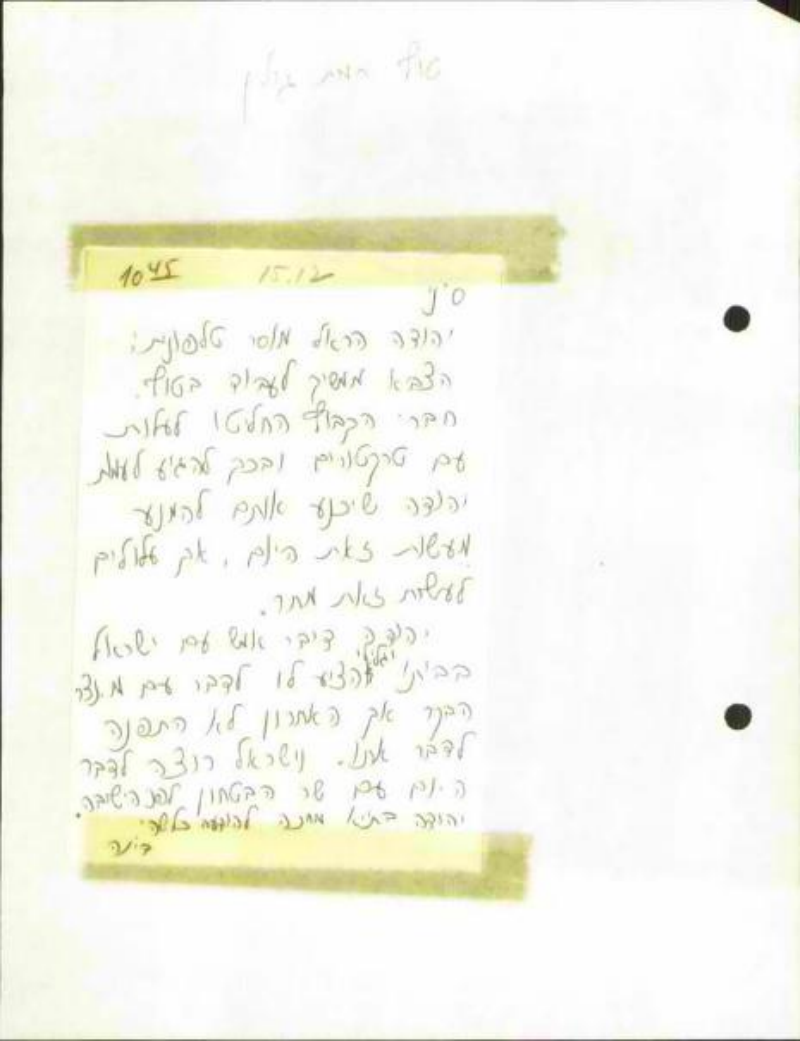 טוף רמת גולן
10 45 15.12
סיני
יהודה הראל מוסר טלפונית:
הצבא ממשיך לעבוד בטוף.
חברי הקבוץ החליטו לעלות
עם טרקטורים ובכך להגיע לעמת
יהודה שיכנע אותם להמנע
מעשות זאת היום, אך עלולים
לעשות זאת מחר.
יהודה דיבר אמש עם ישראל
בביתו הציע לו לדבר עם
הבקר אך האחרון לא התפנה
לדבר אתו. וישראל רוצה לדבר
היום עם שר הבטחון לפני הישיבה.
יהודה מחכה להודעה
בינה